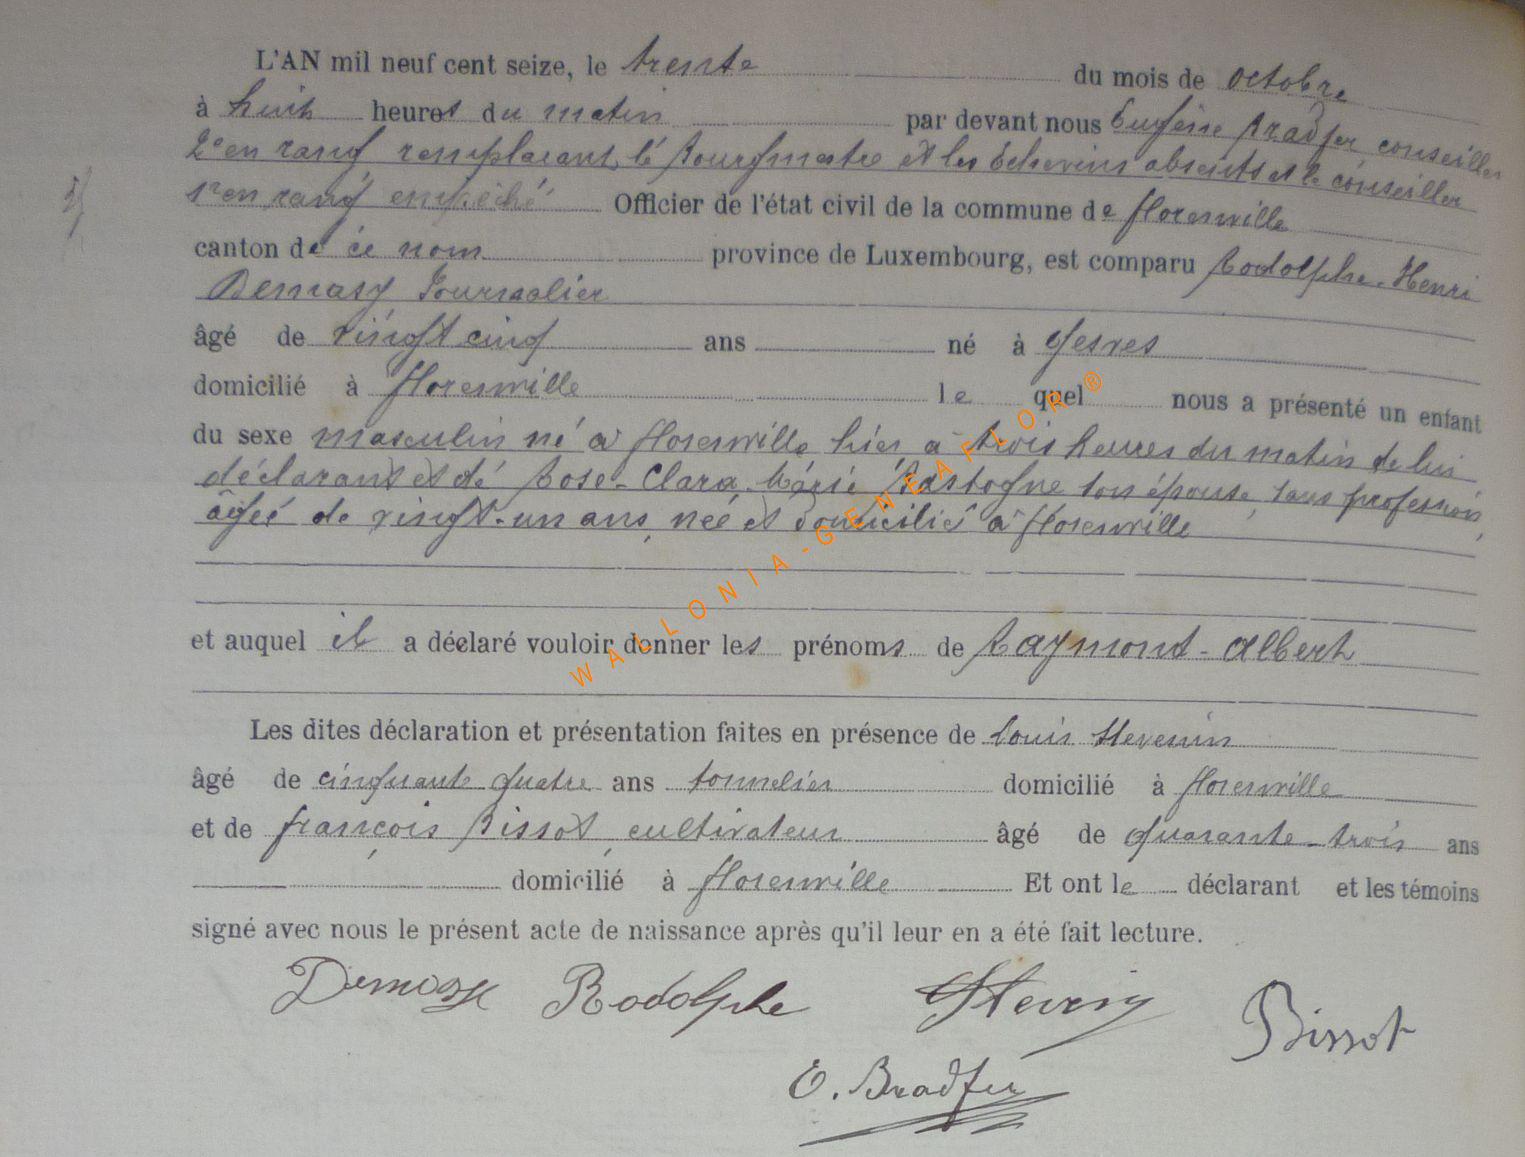 L'AN mil neuf cent seize, le trente du mois de octobre
à huit heures du matin par devant nous Eugène Bradfer conseiller
2e en rang remplaçant le Bourgmestre et les Echevins absents et le conseiller
1r en rang empêché Officier de l'état civil de la commune de Florenville
canton de ce nom province de Luxembourg, est comparu Rodolphe-Henri
Demasy Journalier
âgé de vingt cinq ans né à Gesves
domicilié à Florenville lequel nous a présenté un enfant
du sexe masculin né à Florenville hier à trois heures du matin de lui
déclarant et de Rose-Clara-Marie Bastogne son épouse, sans profession,
âgée de vingt-un ans, née et domiciliée à Florenville
et auquel il a déclaré vouloir donner les prénoms de Raymond-Albert
Les dites déclaration et présentation faites en présence de Louis Stevenin
âgé de cinquante quatre ans tonnelier domicilié à Florenville
et de François Bissot, cultivateur âgé de quarante-trois ans
domicilié à Florenville Et ont le déclarant et les témoins
signé avec nous le présent acte de naissance après qu'il leur en a été fait lecture.
Rodolphe Bissot
E. Bradfer
WALLONIA-GENEAFLOR®